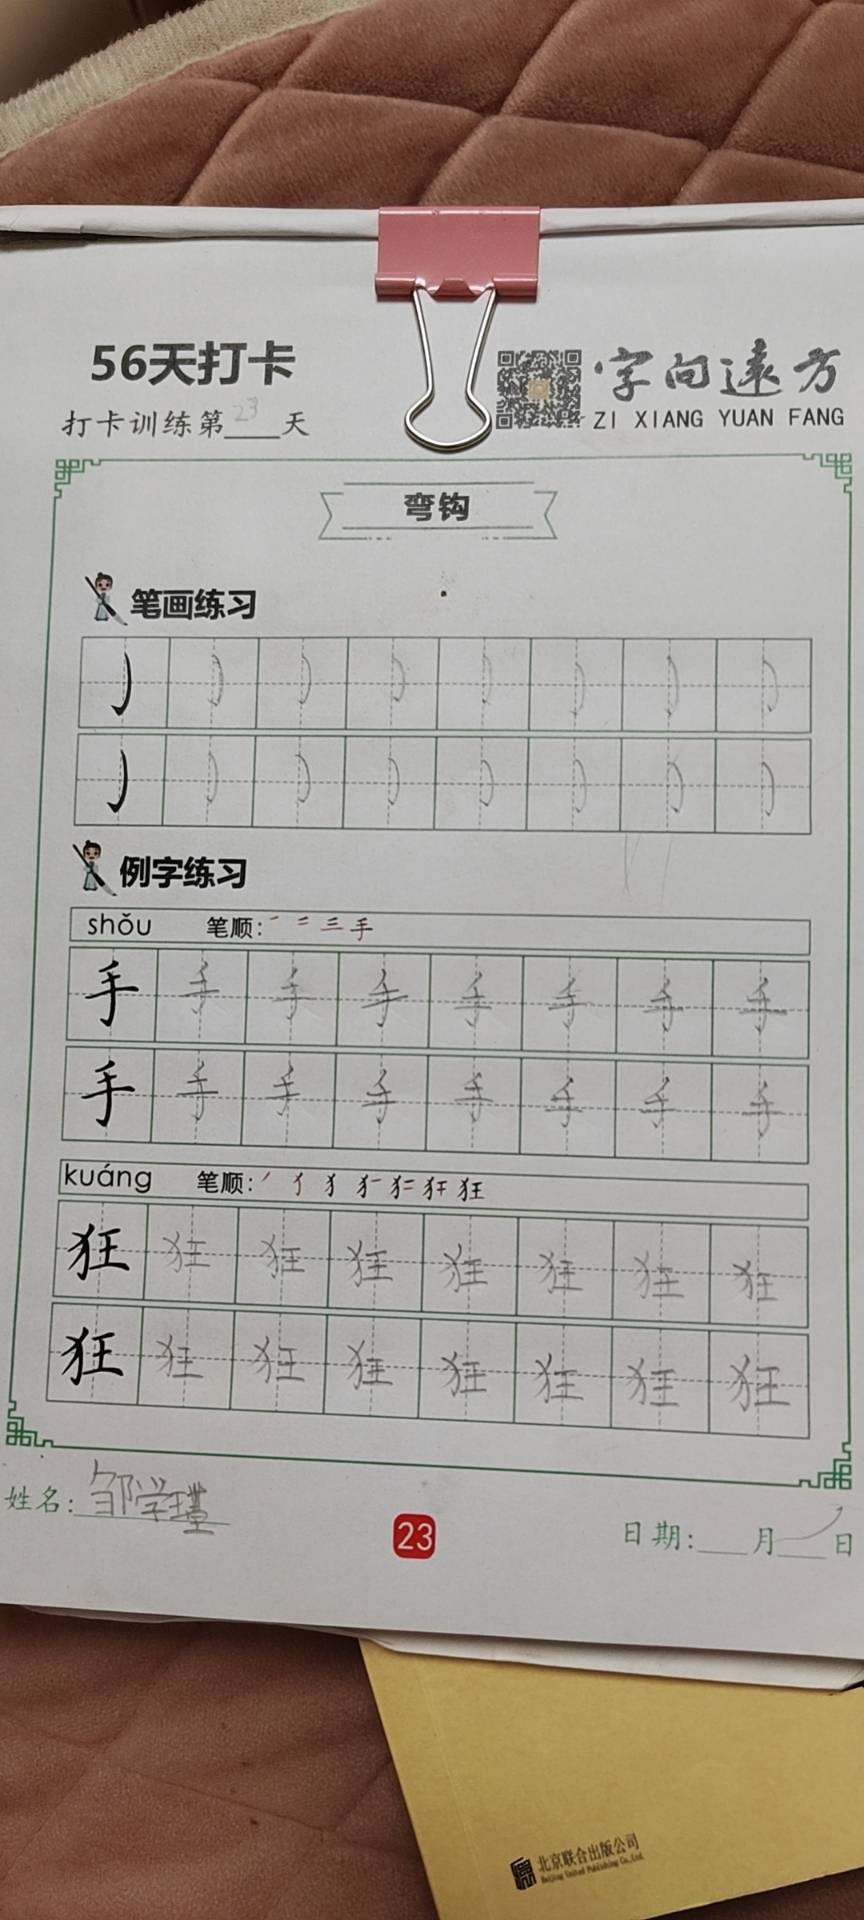 56天打卡
打卡训练第23天
字向远方
ZI XIANG YUAN FANG
弯钩
笔画练习
例字练习
shǒu 笔顺: 一 二 三 手
手 手 手 手 手 手 手 手
手 手 手 手 手 手 手 手
kuáng 笔顺:
狂 狂 狂 狂 狂 狂 狂 狂
狂 狂 狂 狂 狂 狂 狂 狂
姓名:邹学瑾
23
日期: 月 日
北京联合出版公司
Beijing United Publishing Co.,Ltd.